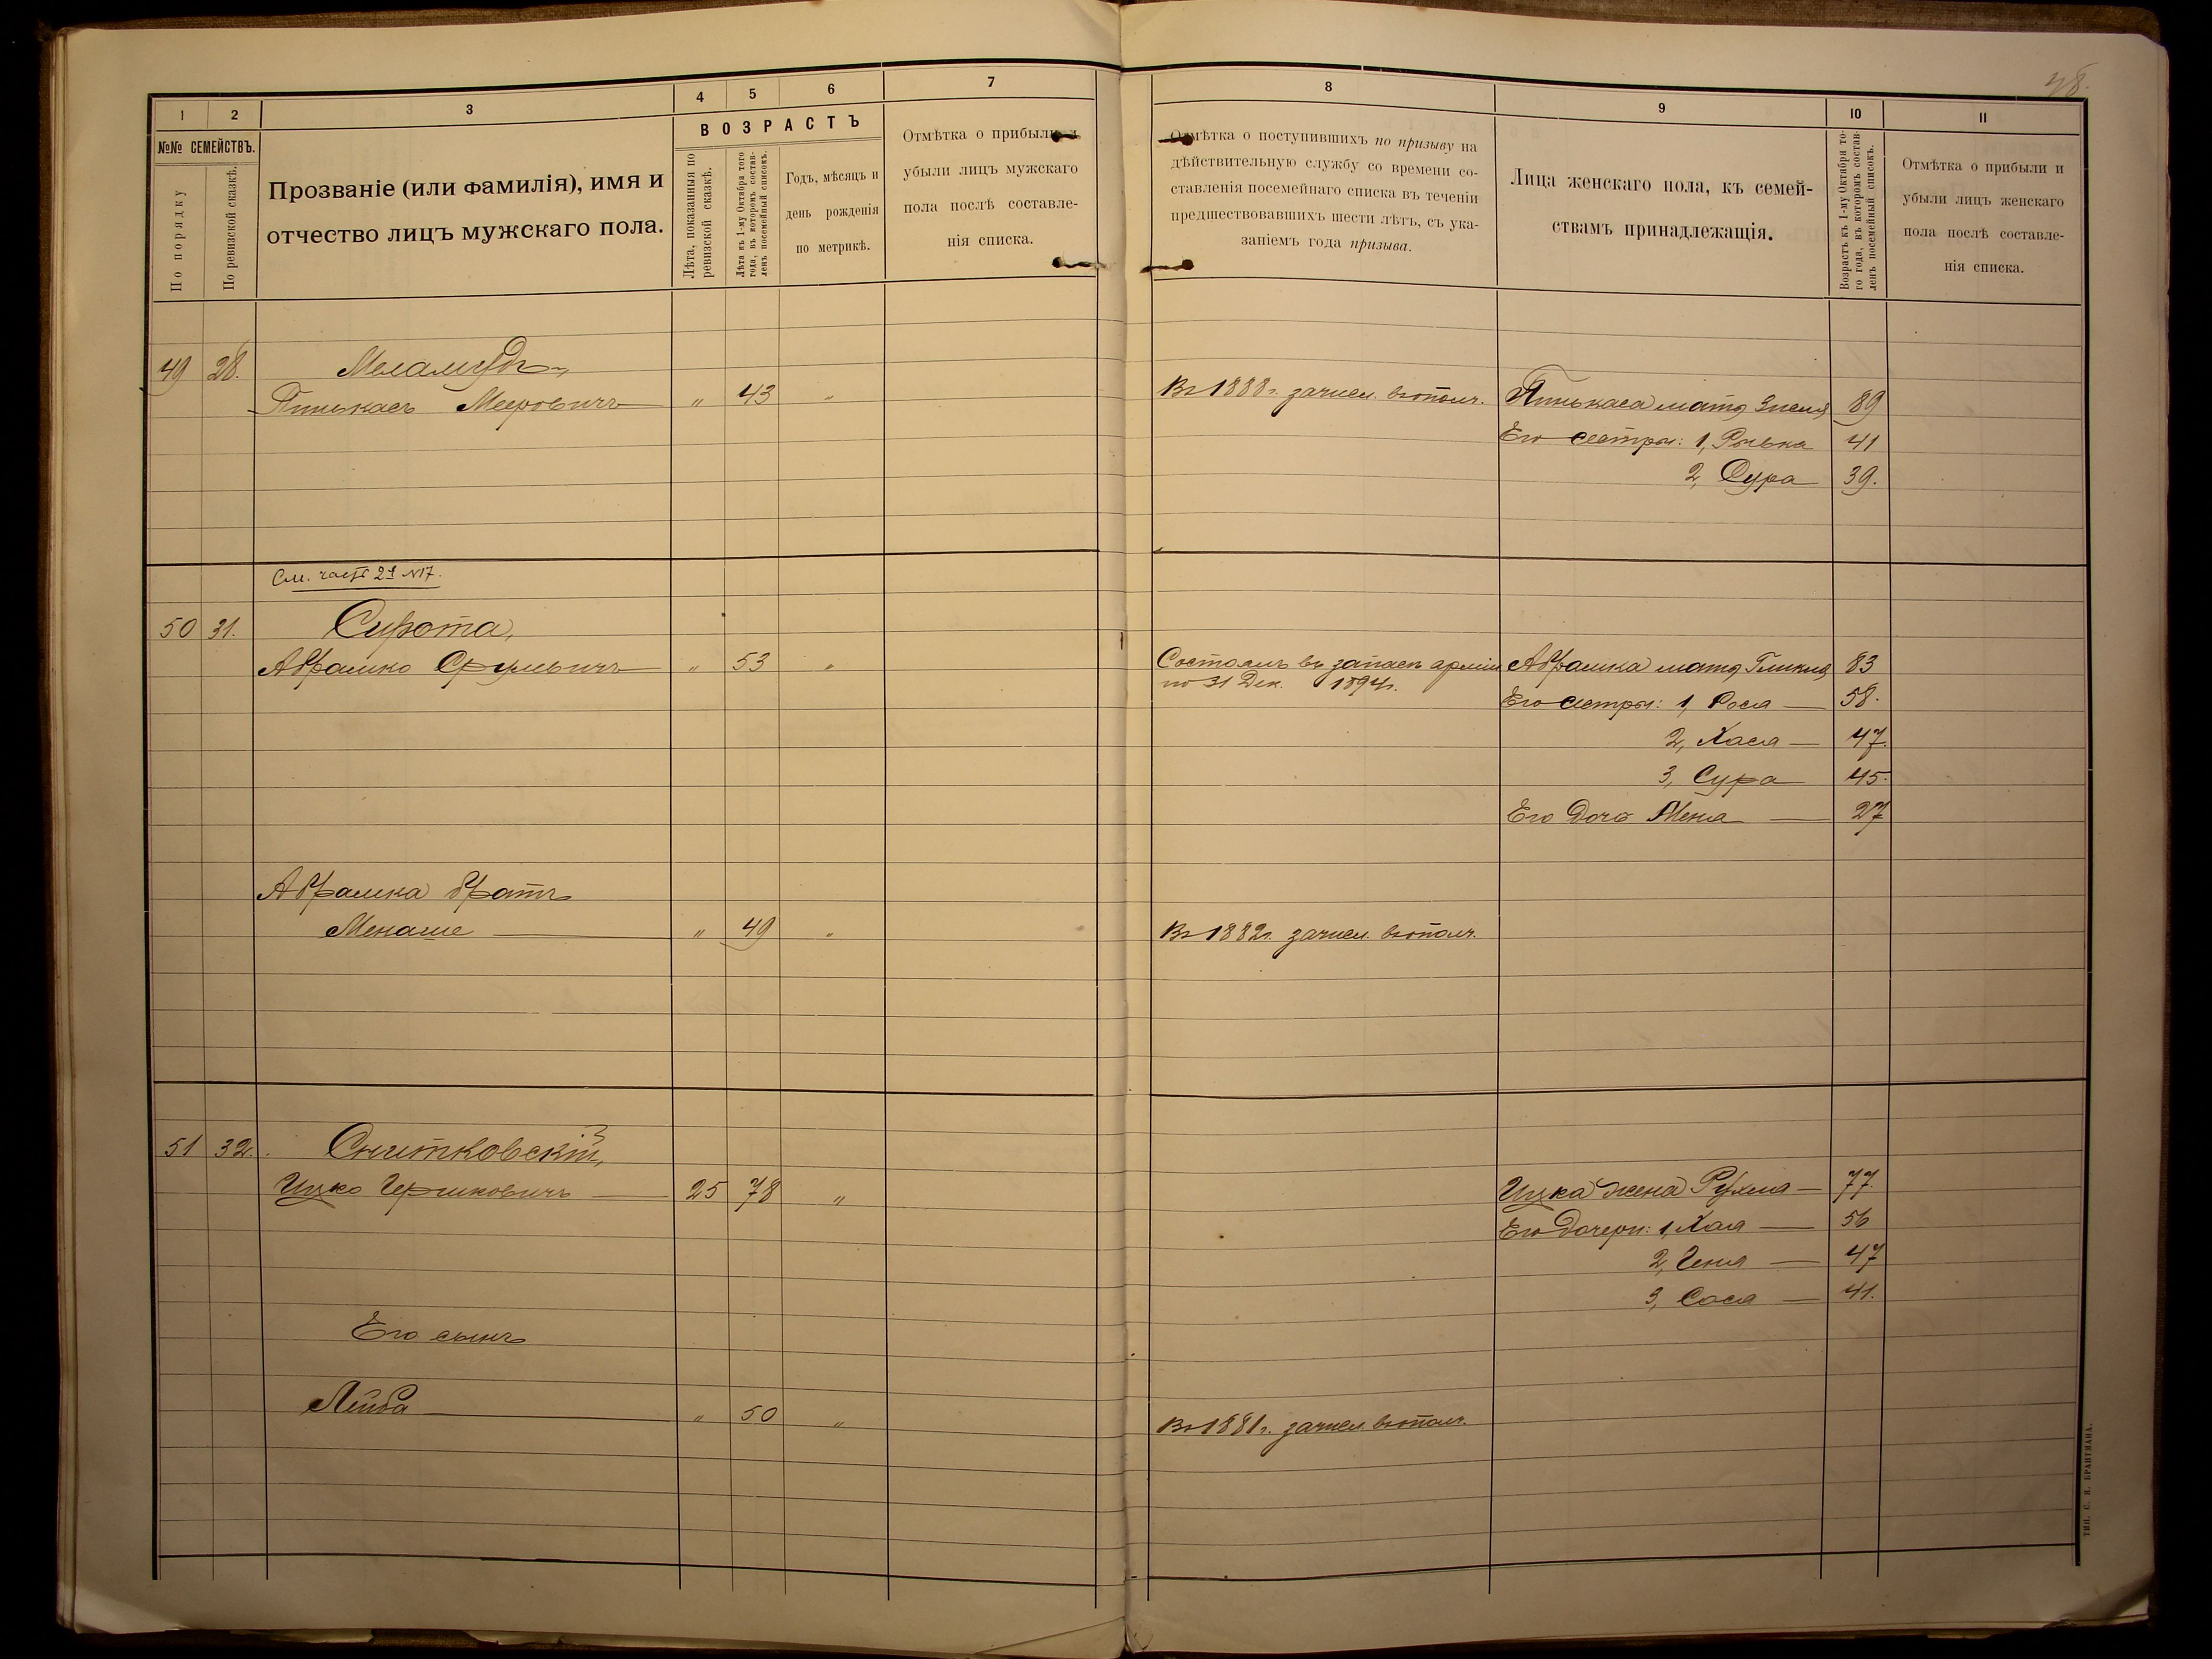 48.
1 2 3 4 5 6 7
№№ СЕМЕЙСТВЪ.
По порядку
По ревизской сказкѣ.
Прозваніе (или фамилія), имя и
отчество лицъ мужскаго пола.
ВОЗРАСТЪ
Лѣта, показанныя по
ревизской сказкѣ.
Лѣта къ 1-му Октября того
года, въ которомъ состав-
ленъ посемейный списокъ.
Годъ, мѣсяцъ и
день рожденія
по метрикѣ.
Отмѣтка о прибыли и
убыли лицъ мужскаго
пола послѣ составле-
нія списка.
49 28. Меламудъ,
Пинькасъ Мееровичъ — „ 43 „
См. часть 2я №17.
50 31. Сирота,
Абрамко Срулевичъ — „ 53 „
Абрамка братъ
Менаше — „ 49 „
51 32. Снитковскій,
Ицко Гершковичъ — 25 78 „
Его сынъ
Лейба — „ 50 „
8 9 10 11
Отмѣтка о поступившихъ по призыву на
дѣйствительную службу со времени со-
ставленія посемейнаго списка въ теченіи
предшествовавшихъ шести лѣтъ, съ ука-
заніемъ года призыва.
Лица женскаго пола, къ семей-
ствамъ принадлежащія.
Возрастъ къ 1-му Октября то-
го года, въ которомъ состав-
ленъ посемейный списокъ.
Отмѣтка о прибыли и
убыли лицъ женскаго
пола послѣ составле-
нія списка.
Въ 1888г. зачисл. въ ополч. Пинькаса мать Зисля 89
Его сестры: 1, Рывка 41
2, Сура 39.
Состоялъ въ запасѣ арміи Абрамка мать Гликля 83
по 31 Дек. 1894г.
Его сестры: 1, Рося — 58.
2, Хася — 47.
3, Сура — 45.
Его дочь Меня — 27
Въ 1882г. зачисл. въ ополч.
Ицка жена Рухля — 77.
Его дочери: 1, Хая — 56
2, Геня — 47
3, Сося — 41.
Въ 1881г. зачисл. въ ополч.
ТИП. С. Я. БРАНТМАНА.